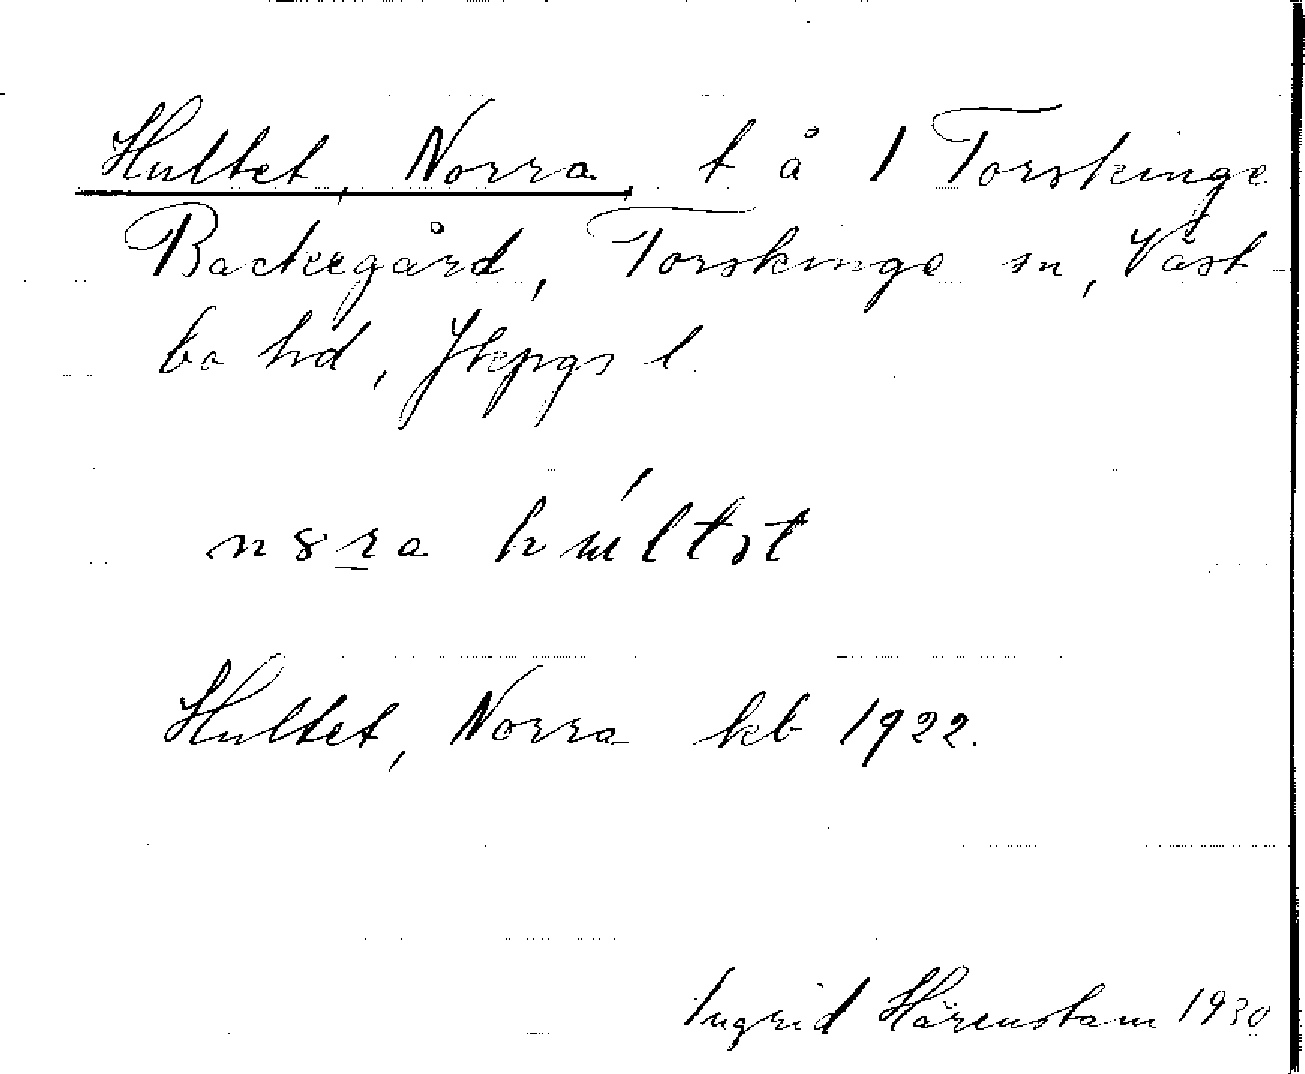 Hultet, Norra, t å 1 Torskinge
Backegård, Torskinge sn, Väst
bo hd, Jkpgs l.
Hultet, Norra kb 1922.
Ingrid Härenstam 1930